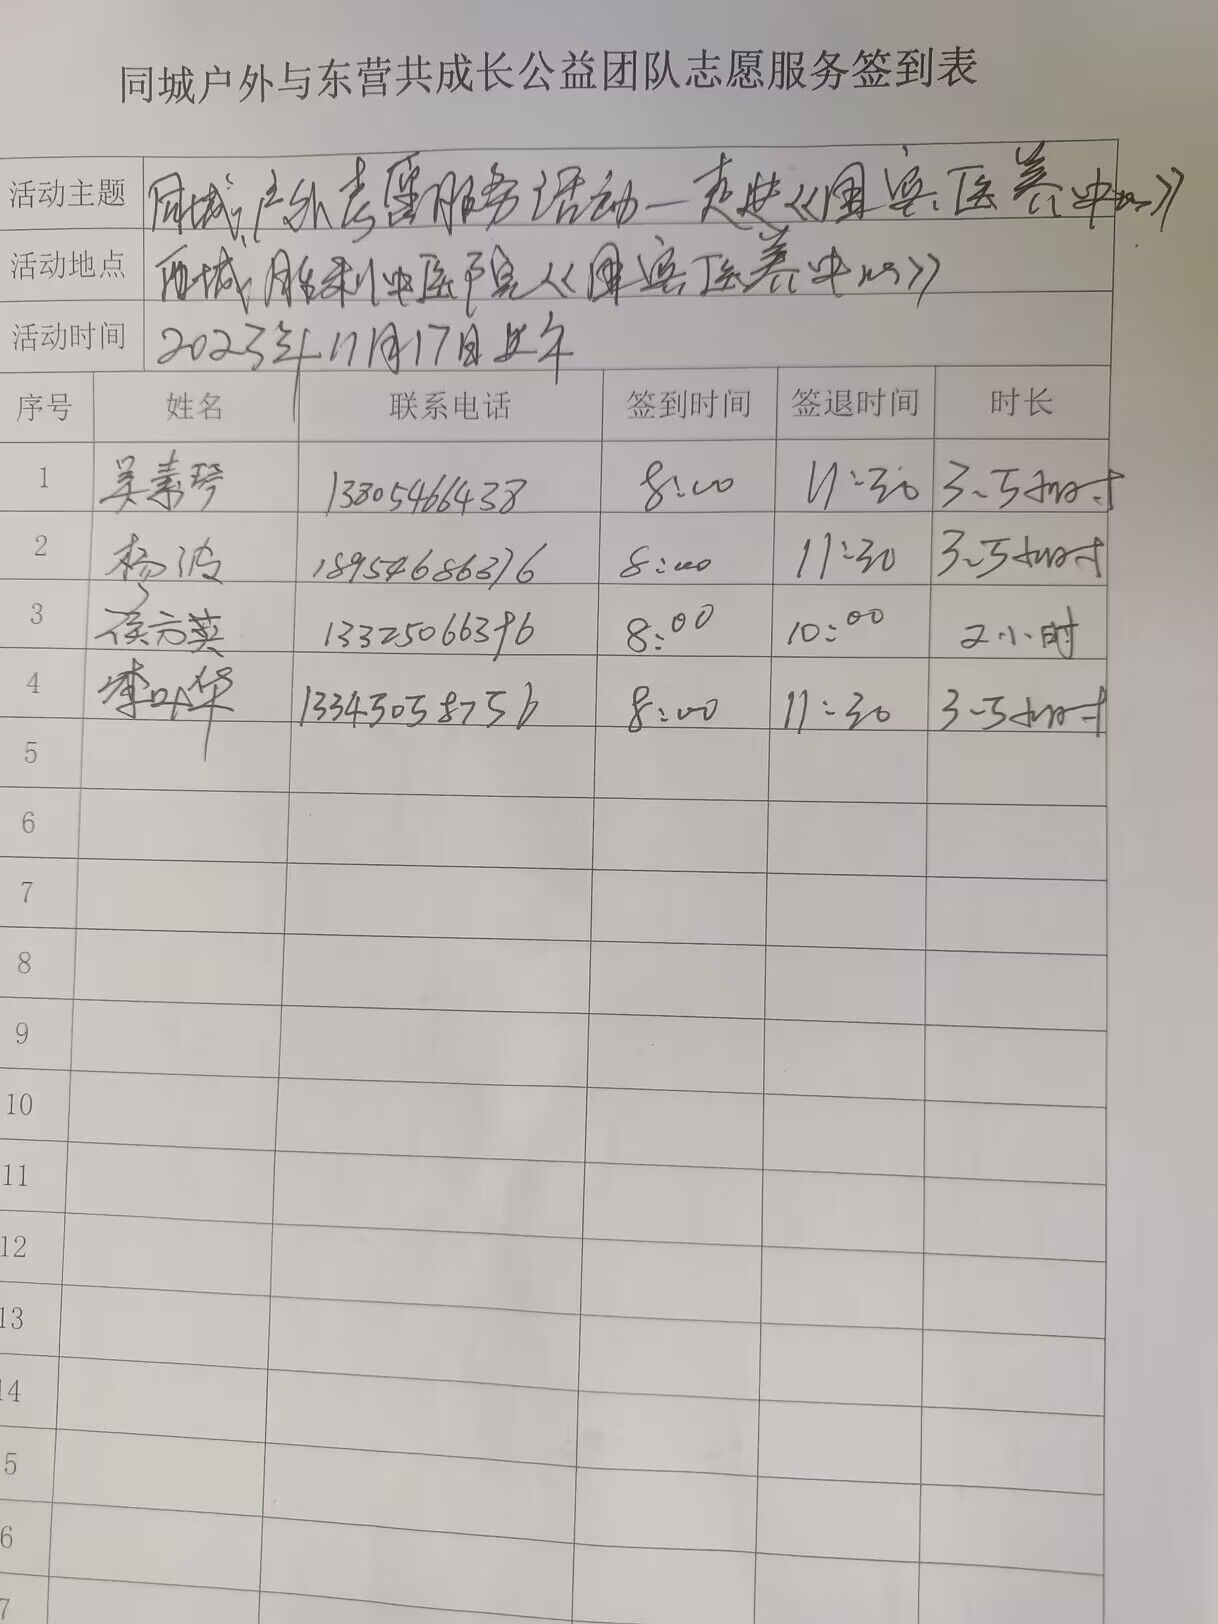 同城户外与东营共成长公益团队志愿服务签到表
活动主题 同城户外志愿服务活动—走进《国宾医养中心》
活动地点 西城胜利中医院《国宾医养中心》
活动时间 2023年11月17日上午
序号 姓名 联系电话 签到时间 签退时间 时长
1 吴素琴 13305466438 8:00 11:30 3.5小时
2 杨波 18954686376 8:00 11:30 3.5小时
3 侯方英 13325066396 8:00 10:00 2小时
4 李叶华 13345058756 8:00 11:30 3.5小时
5
6
7
8
9
10
11
12
13
14
5
6
7